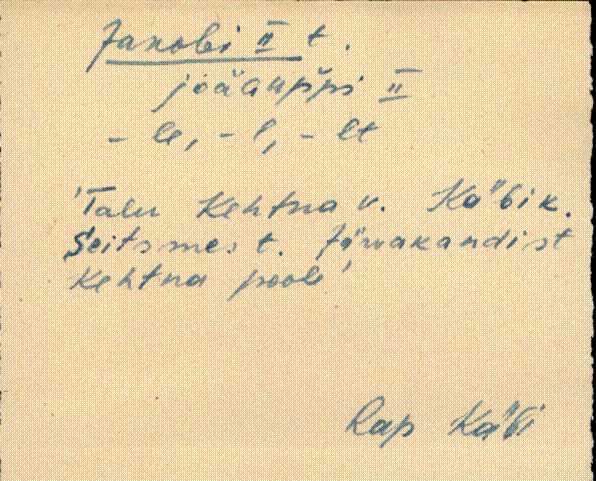 Jakobi II t.
II
-le, -l, -lt
'Talu Kehtna v. Käbik.
Seitsmes t. Järvakandist
Kehtna poole'
Rap Käbi